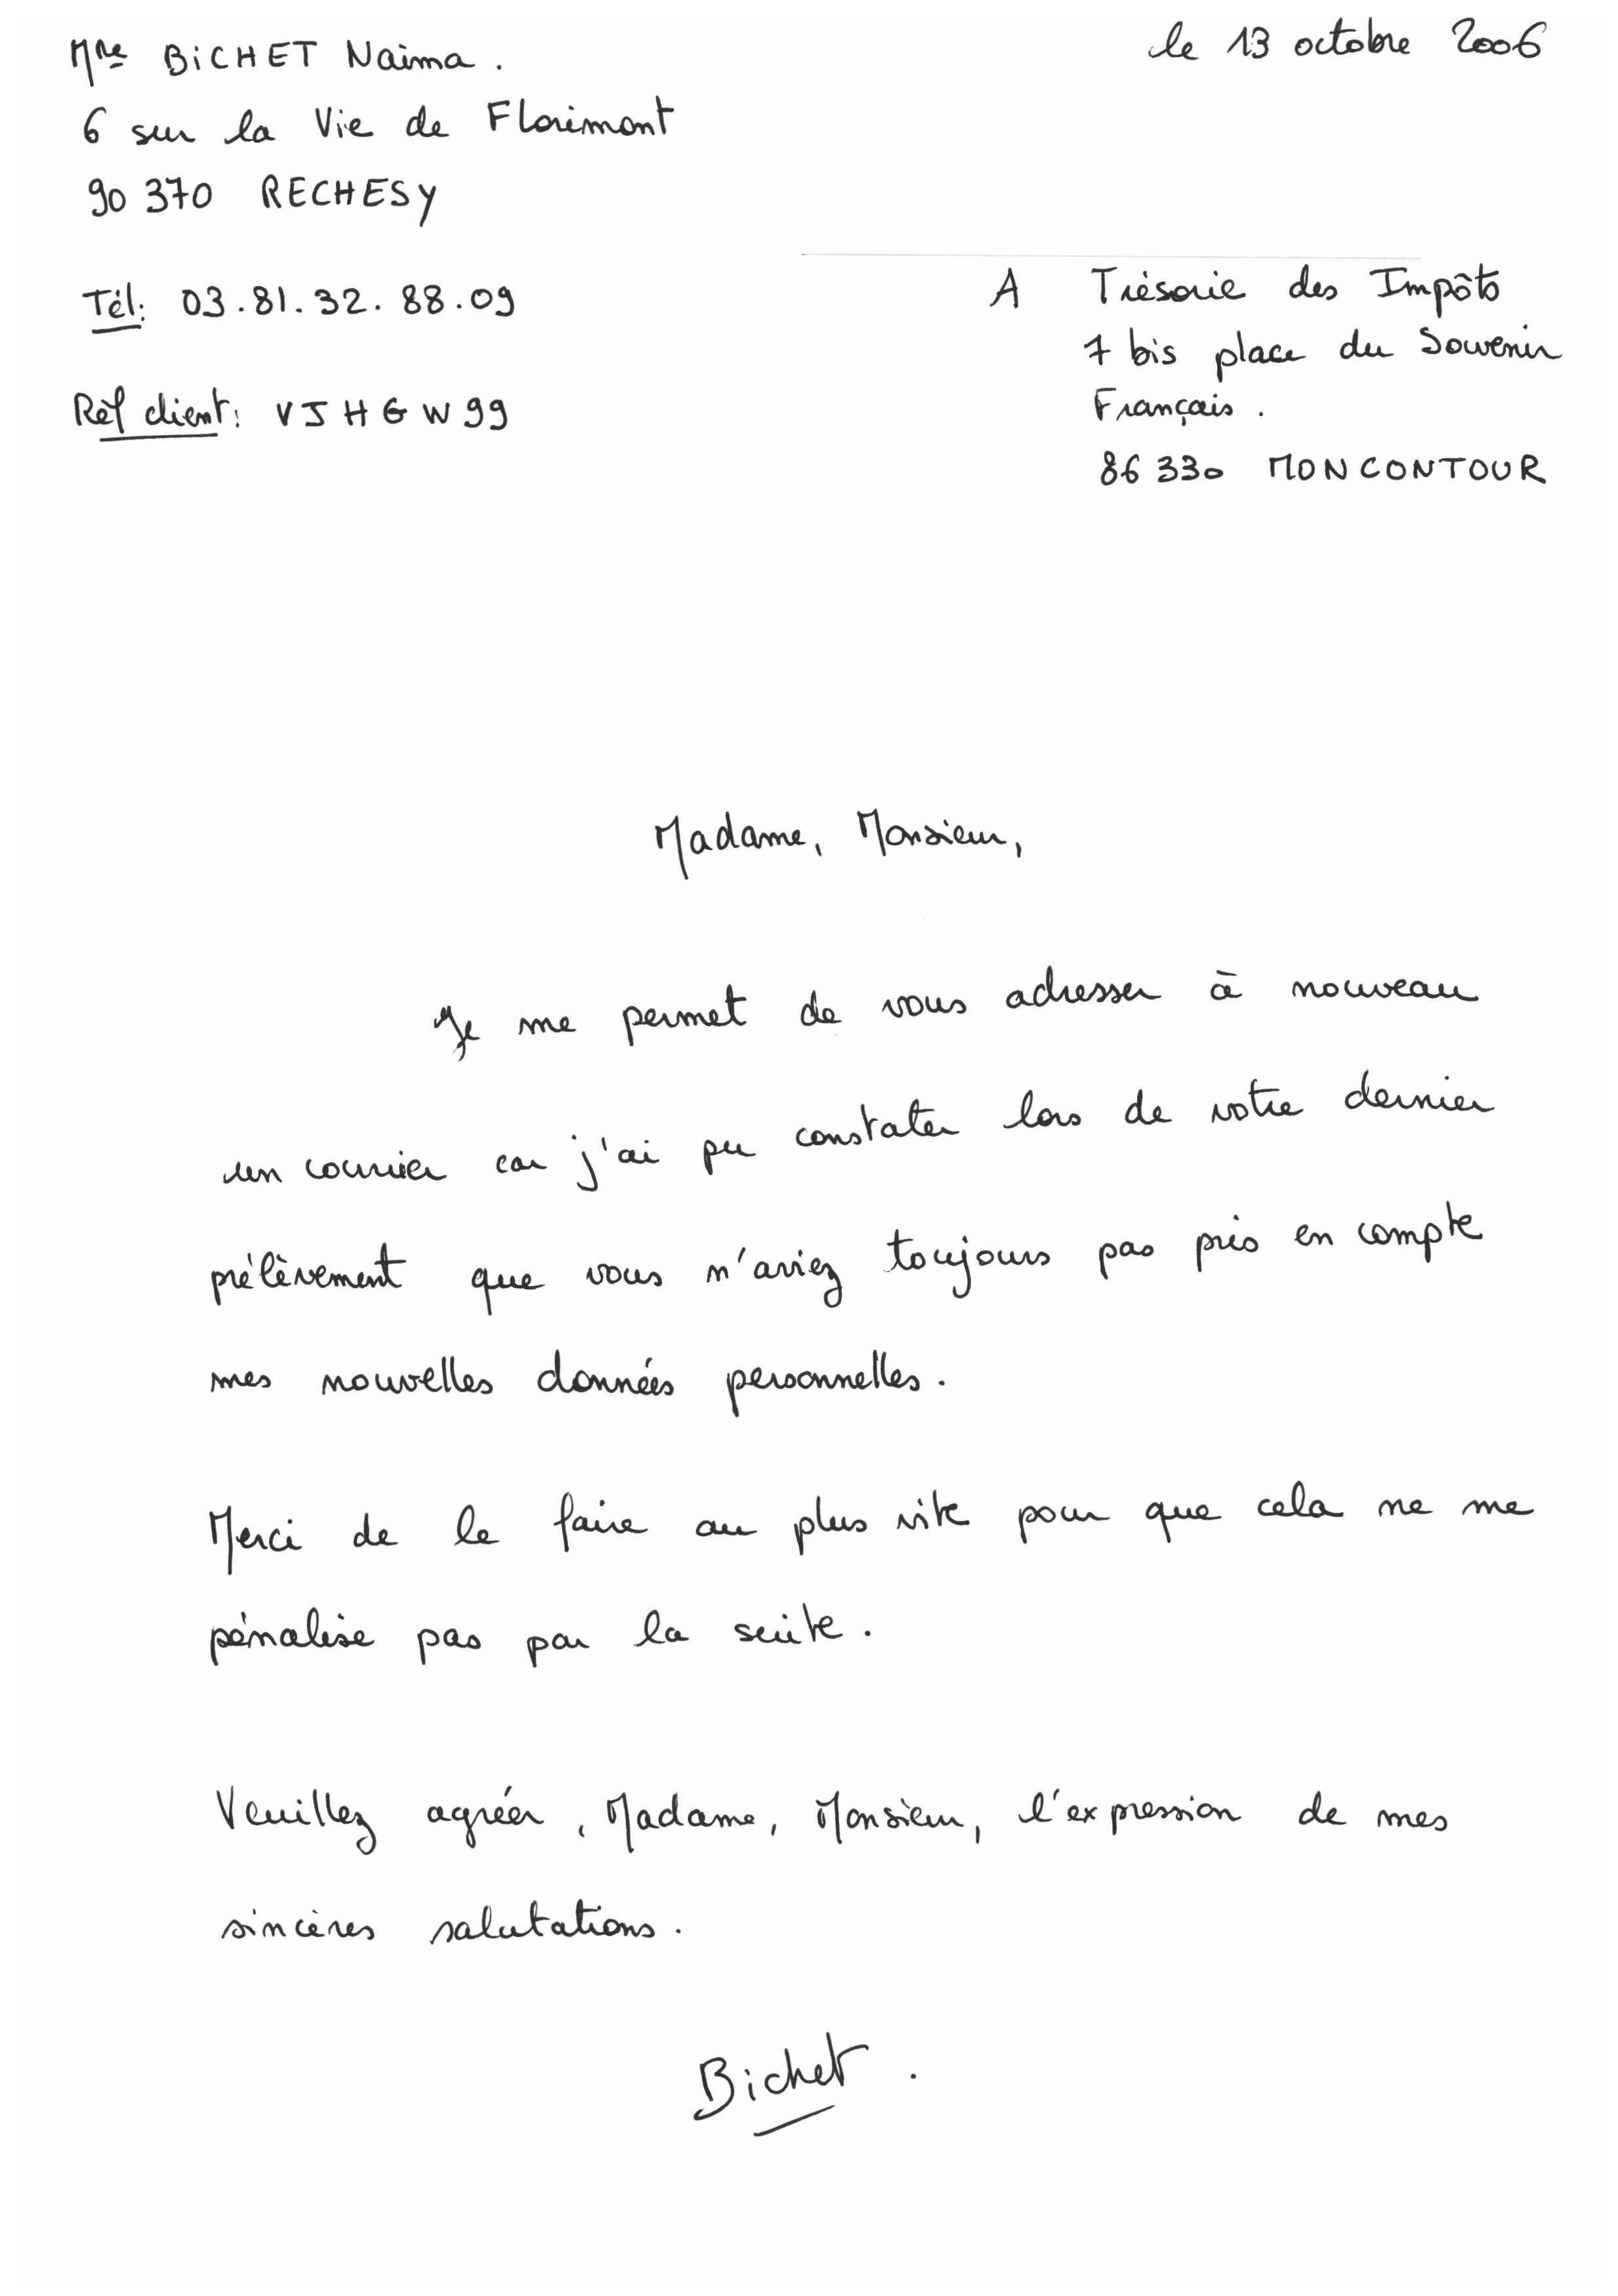 Mme BiCHET Naima.
le 13 octobre 2006
6 sur la Vie de Florimont
90 370 RECHESY
Tél: 03.81.32.88.09
A Trésorie des Impôts
7 bis place du Souvenir
Français.
86 330 MONCONTOUR
Réf client: VJHGW99
Madame, Monsieur,
Je me permet de vous adresser à nouveau
un courrier car j'ai pu constater lors de votre dernier
prélèvement que vous n'aviez toujours pas pris en compte
mes nouvelles données personnelles.
Merci de le faire au plus vite pour que cela ne me
pénalise pas par la suite.
Veuillez agréer, Madame, Monsieur, l'expression de mes
sincères salutations.
Bichet.